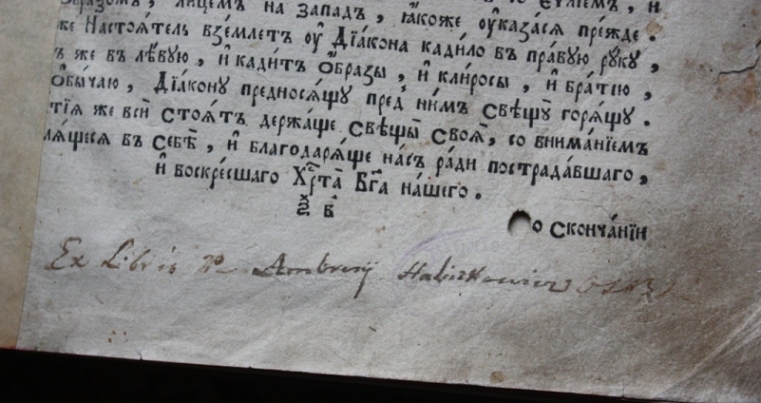 Образомъ, лицемъ на западъ, ꙗкоже ѹказасѧ прежде.
же Настоѧтель вземлетъ ѹ Дїакона кадило въ правую руку,
же въ лѣвую, и кадитъ Образы, и клиросы, и братїю,
Обычаю, Дїакону предносѧщу пред нимъ свѣщу горѧщу.
тїѧ же вси стоѧтъ держаще свѣщы своѧ, со вниманїемъ
лѧщесѧ въ себѣ, и благодарѧще насъ ради пострадавшаго,
и воскресшаго Хрⷭ҇та Бг҃а нашего.
о скончанїи
Ex Libris Ambrosij